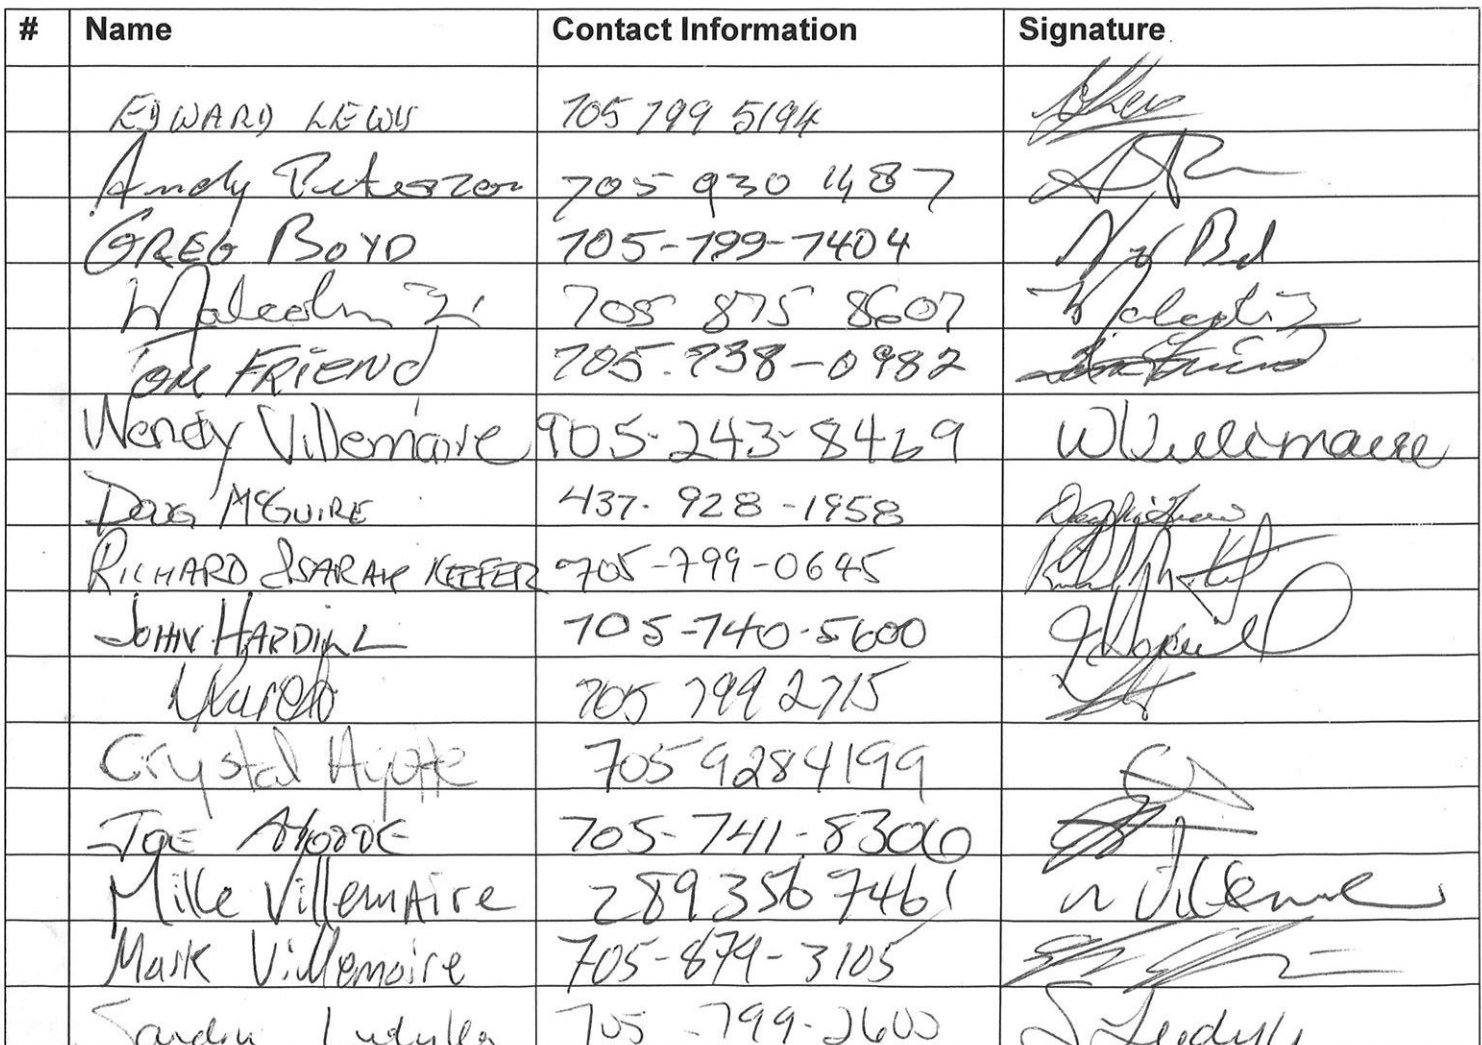 # Name Contact Information Signature
EDWARD LEWIS 705 799 5194
Andy Peterson 705 930 1487
GREG BOYD 705-799-7404
Malcolm Zi 705 875 8607
TOM FRIEND 705-738-0982
Wendy Villemaire 905-243-8469 W Villemaire
DOUG McGUIRE 437-928-1958
RICHARD & SARAH KEEFER 705-799-0645
JOHN HARDILL 705-740-5600
705 799 2715
Crystal Ayotte 705 928 4199
JOE AYOTTE 705-741-8306
Mike VillemAire 289 356 7461
Mark Villemaire 705-879-3105
Sandra 705-799-2600